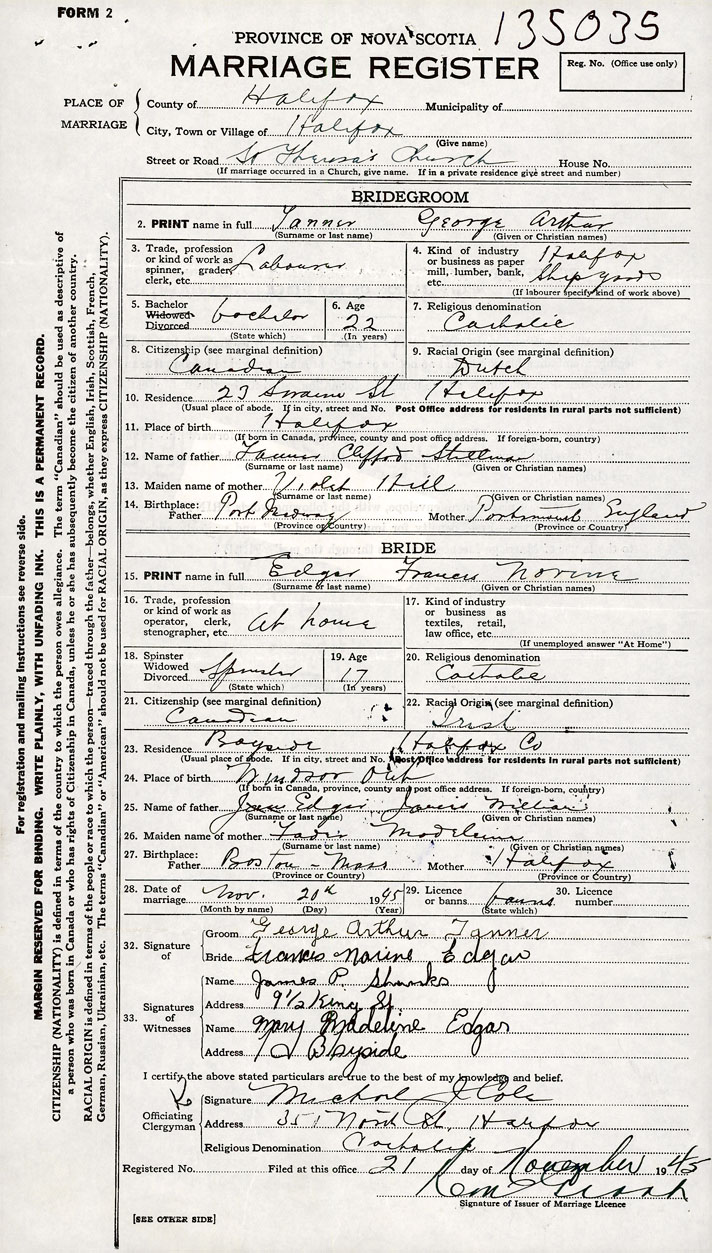 FORM 2
135035
PROVINCE OF NOVA SCOTIA
MARRIAGE REGISTER
Reg. No. (Office use only)
PLACE OF MARRIAGE
County of Halifax Municipality of
City, Town or Village of Halifax
(Give name)
Street or Road St Theresa's Church House No.
(If marriage occurred in a Church, give name. If in a private residence give street and number)
BRIDEGROOM
2. PRINT name in full Tanner George Arthur
(Surname or last name) (Given or Christian names)
3. Trade, profession or kind of work as spinner, grader, clerk, etc. Labourer
4. Kind of industry or business as paper mill, lumber, bank, etc. Halifax Ship yards
(If labourer specify kind of work above)
5. Bachelor Widowed Divorced bachelor
(State which)
6. Age 22
(In years)
7. Religious denomination Catholic
8. Citizenship (see marginal definition) Canadian
9. Racial Origin (see marginal definition) Dutch
10. Residence 23 St Halifax
(Usual place of abode. If in city, street and No. Post Office address for residents in rural parts not sufficient)
11. Place of birth Halifax
(If born in Canada, province, county and post office address. If foreign-born, country)
12. Name of father Tanner Clifford
(Surname or last name) (Given or Christian names)
13. Maiden name of mother Violet Hill
(Surname or last name) (Given or Christian names)
14. Birthplace: Father Port Medway Mother Portsmouth England
(Province or Country) (Province or Country)
BRIDE
15. PRINT name in full Edgar Francis Norine
(Surname or last name) (Given or Christian names)
16. Trade, profession or kind of work as operator, clerk, stenographer, etc. at home
17. Kind of industry or business as textiles, retail, law office, etc.
(If unemployed answer "At Home")
18. Spinster Widowed Divorced Spinster
(State which)
19. Age 17
(In years)
20. Religious denomination Catholic
21. Citizenship (see marginal definition) Canadian
22. Racial Origin (see marginal definition) Irish
23. Residence Bayside Halifax Co
(Usual place of abode. If in city, street and No. Post Office address for residents in rural parts not sufficient)
24. Place of birth Windsor Ont
(If born in Canada, province, county and post office address. If foreign-born, country)
25. Name of father Edgar William
(Surname or last name) (Given or Christian names)
26. Maiden name of mother Madeleine
(Surname or last name) (Given or Christian names)
27. Birthplace: Father Boston - Mass Mother Halifax
(Province or Country) (Province or Country)
28. Date of marriage Nov. 20th 1945
(Month by name) (Day) (Year)
29. Licence or banns banns
(State which)
30. Licence number
32. Signature of
Groom George Arthur Tanner
Bride Francis Norine Edgar
33. Signatures of Witnesses
Name James P. Shanks
Address 9½ King St
Name Mary Madeline Edgar
Address Bayside
I certify the above stated particulars are true to the best of my knowledge and belief.
Officiating Clergyman
Signature Michael J Cole
Address 351 North St. Halifax
Religious Denomination Catholic
Registered No. Filed at this office 21 day of November 1945
Signature of Issuer of Marriage Licence
[SEE OTHER SIDE]
For registration and mailing instructions see reverse side.
MARGIN RESERVED FOR BINDING. WRITE PLAINLY, WITH UNFADING INK. THIS IS A PERMANENT RECORD.
CITIZENSHIP (NATIONALITY) is defined in terms of the country to which the person owes allegiance. The term "Canadian" should be used as descriptive of
a person who was born in Canada or who has rights of Citizenship in Canada, unless he or she has subsequently become the citizen of another country.
RACIAL ORIGIN is defined in terms of the people or race to which the person—traced through the father—belongs, whether English, Irish, Scottish, French,
German, Russian, Ukrainian, etc. The terms "Canadian" or "American" should not be used for RACIAL ORIGIN, as they express CITIZENSHIP (NATIONALITY).